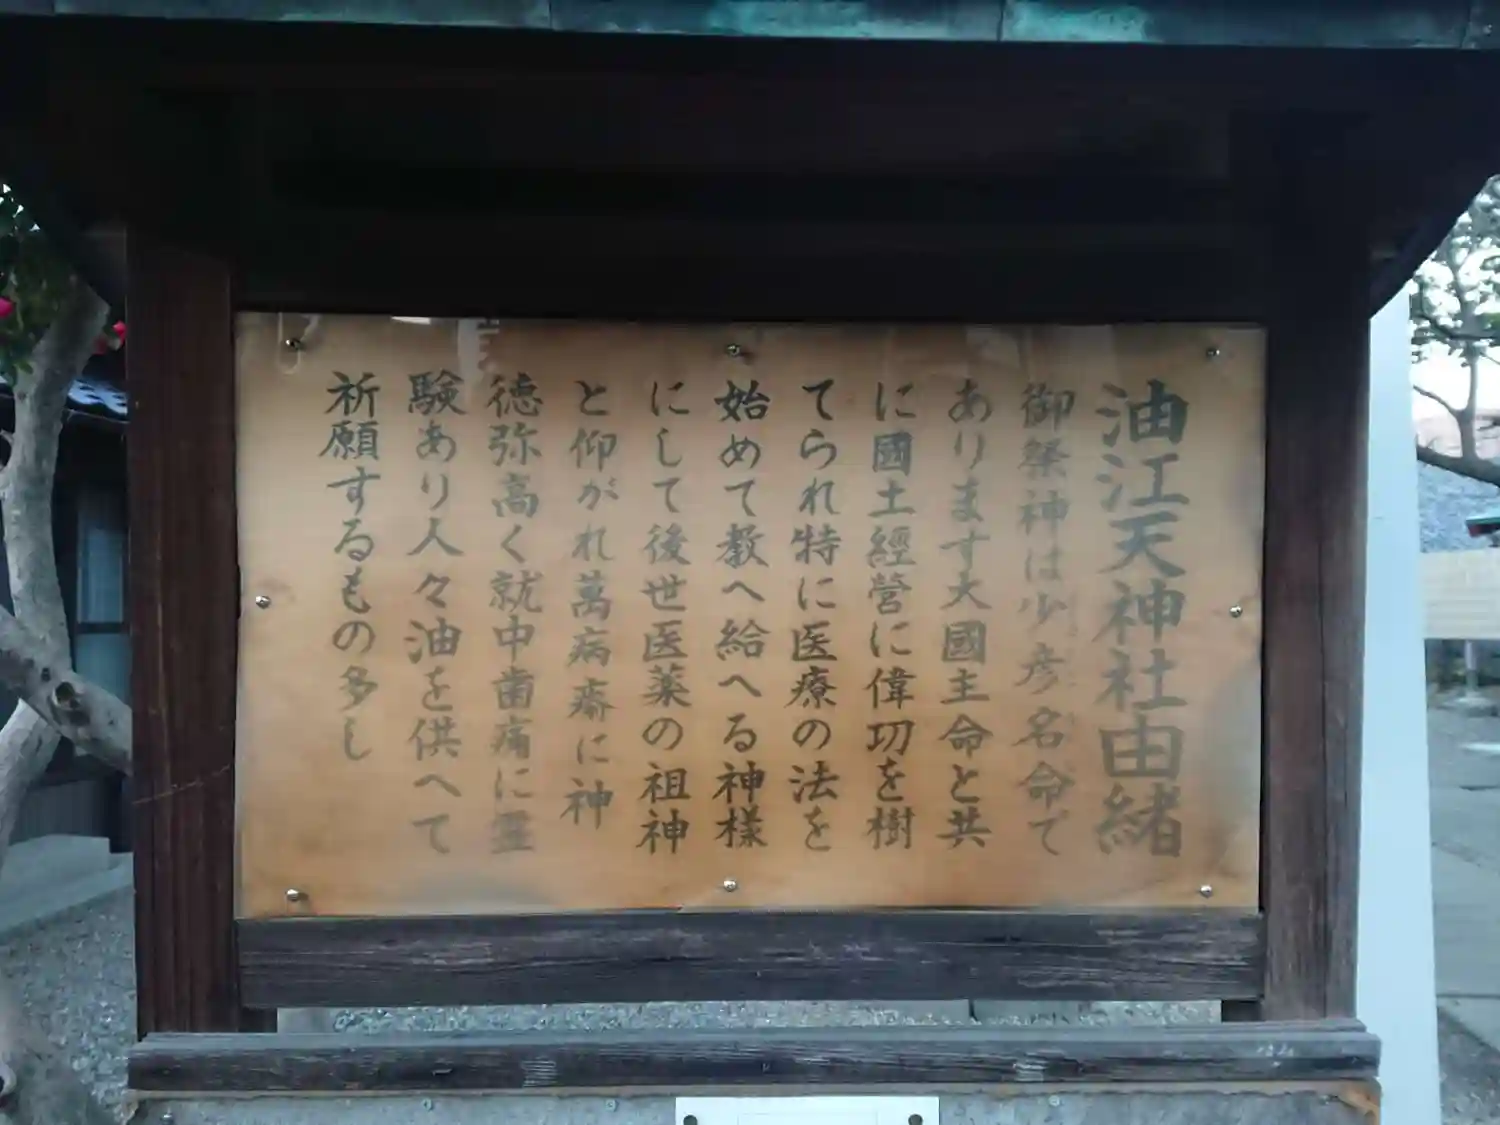 油江天神社由緒
御祭神は少彦名命で
あります大國主命と共
に國土經營に偉功を樹
てられ特に医療の法を
始めて教へ給へる神様
にして後世医薬の祖神
と仰がれ萬病癒に神
徳弥高く就中歯痛に霊
験あり人々油を供へて
祈願するもの多し